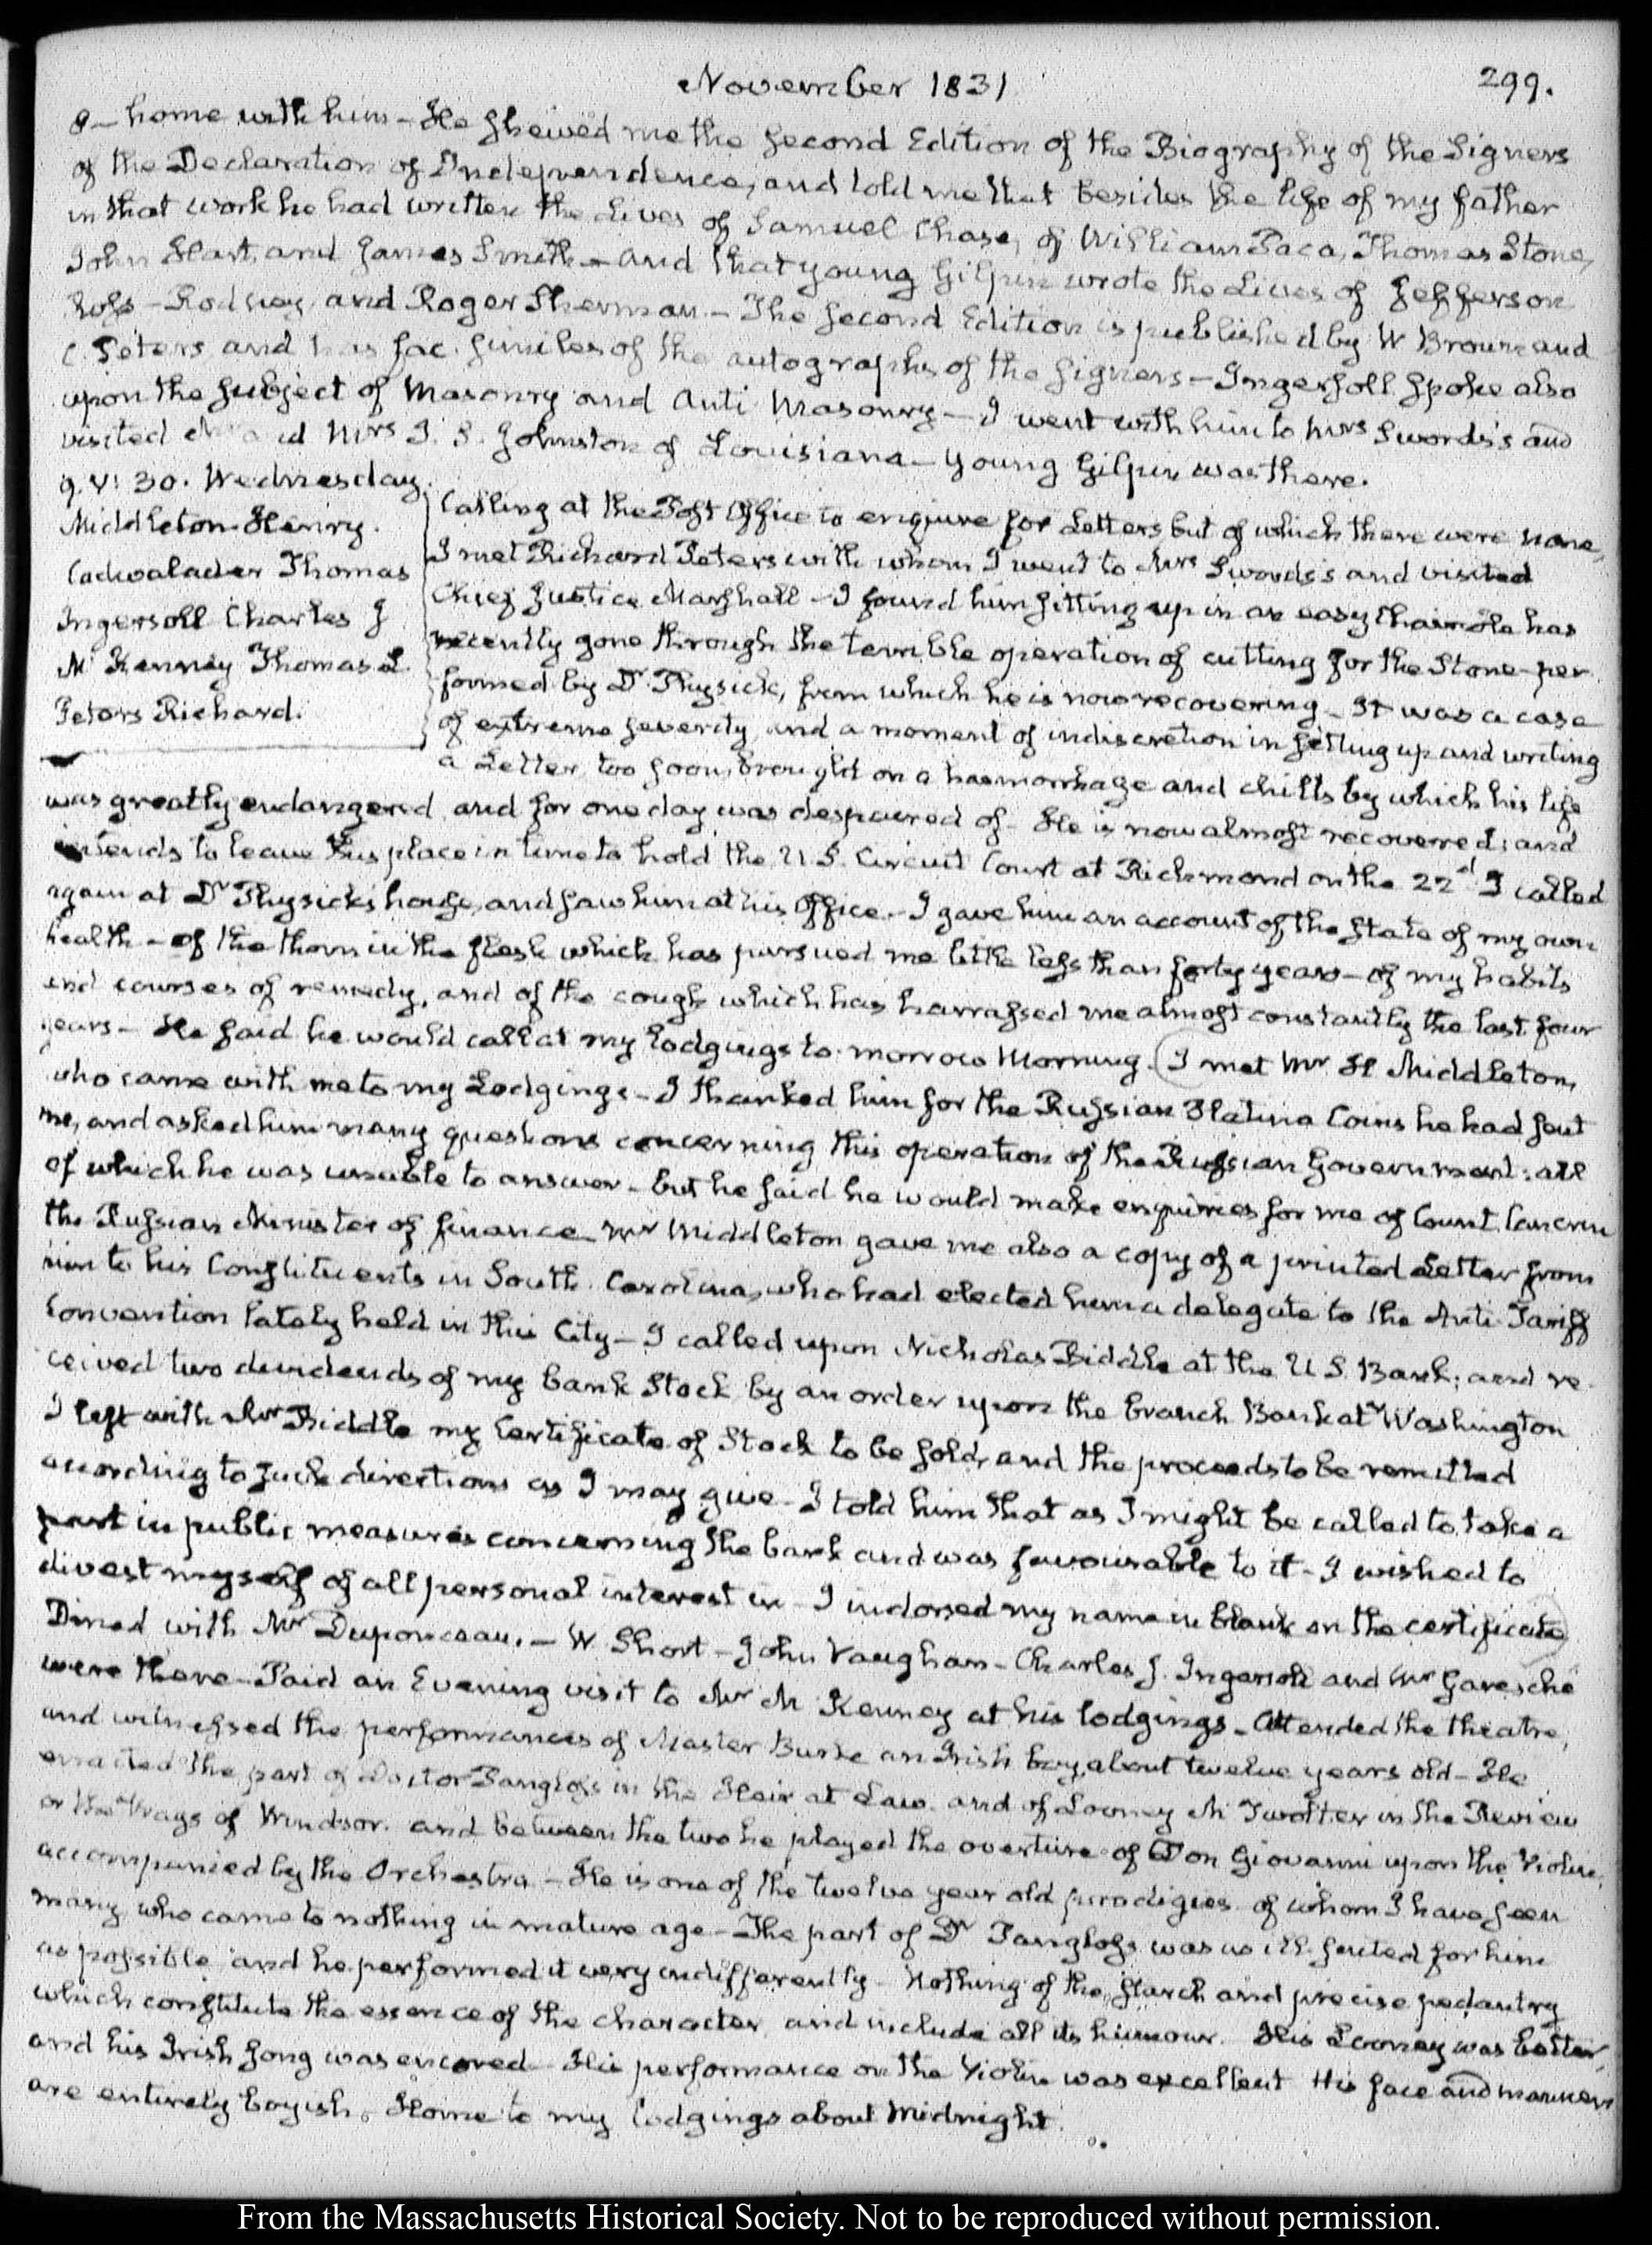 November 1831
299.
home with him – He shewed me the second Edition of the Biography of the Signers
of the Declaration of Independence, and told me that besides the life of my father
in that work he had written the Lives of Samuel Chase, of William Paca, Thomas Stone,
John Hart, and James Smith – and that young Gilpin wrote the Lives of Jefferson
Ross – Rodney, and Roger Sherman. – The second Edition is published by W Brown and
C. Peters and has fac. similes of the autographs of the signers – Ingersoll spoke also
upon the subject of Masonry and Anti Masonry – I went with him to Mrs Swords's and
visited Mrs J. S. Johnston of Louisiana – Young Gilpin was there.
9. V: 30. Wednesday.
Middleton Henry.
Cadwalader Thomas
Ingersoll Charles J
Mc Kenney Thomas L
Peters Richard.
Calling at the Post Office to enquire for Letters but of which there were none,
I met Richard Peters with whom I went to Mrs Swords's and visited
Chief Justice Marshall – I found him sitting up in an easy chair – He has
recently gone through the terrible operation of cutting for the Stone – per
formed by Dr Physick, from which he is now recovering – It was a case
of extreme severity and a moment of indiscretion in setting up and writing
a Letter too soon, brought on a haemorrhage and chills by which his life
was greatly endangered, and for one day was despaired of – He is now almost recovered; and
intends to leave this place in time to hold the U. S. Circuit Court at Richmond on the 22d I called
again at Dr Physick's house, and saw him at his Office. – I gave him an account of the state of my own
health – of the thorn in the flesh which has pursued me little less than forty years – of my habits
and courses of remedy, and of the cough which has harrassed me almost constantly the last four
years – He said he would call at my lodgings to-morrow Morning. (I met Mr H Middleton,
who came with me to my Lodgings – I thanked him for the Russian Platina Coins he had sent
me, and asked him many questions concerning this operation of the Russian Government: all
of which he was unable to answer – but he said he would make enquiries for me of Count Cancrin
the Russian Minister of finance – Mr Middleton gave me also a copy of a printed Letter from
him to his Constituents in South Carolina, who had elected him a delegate to the Anti Tariff
Convention lately held in this City – I called upon Nicholas Biddle at the U S. Bank; and re
ceived two dividends of my bank Stock by an order upon the branch Bank at Washington
I left with Mr Biddle my Certificate of Stock to be sold, and the proceeds to be remitted
according to such directions as I may give – I told him that as I might be called to take a
part in public measures concerning the bank and was favourable to it – I wished to
divest myself of all personal interest in – I indorsed my name in blank on the certificate)
Dined with Mr Duponceau. – W. Short – John Vaughan – Charles J. Ingersoll and Mr Garesché
were there – Paid an Evening visit to Mr Mc Kenney at his lodgings – Attended the theatre,
and witnessed the performances of Master Burke an Irish boy, about twelve years old – He
enacted the part of Doctor Pangloss in the Heir at Law. and of Looney Mc Twolter in the Review
or the Wags of Windsor. and between the two he played the overture of Don Giovanni upon the Violin,
accompanied by the Orchestra – He is one of the twelve year old prodigies of whom I have seen
many who came to nothing in mature age – The part of Dr Pangloss was as ill suited for him
as possible and he performed it very indifferently – Nothing of the starch and precise pedantry
which constitute the essence of the character, and include all its humour. His Looney was better,
and his Irish song was encored – His performance on the Violin was excellent His face and manners
are entirely boyish. Home to my lodgings about Midnight.
From the Massachusetts Historical Society. Not to be reproduced without permission.